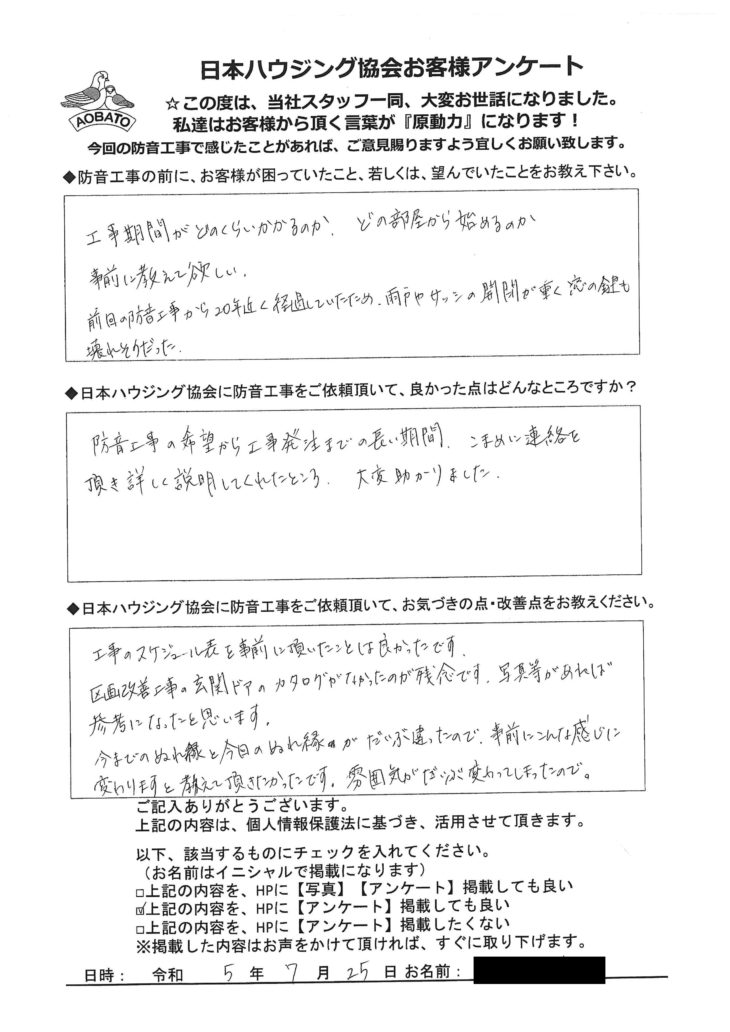 日本ハウジング協会お客様アンケート
AOBATO
☆この度は、当社スタッフ一同、大変お世話になりました。
私達はお客様から頂く言葉が『原動力』になります！
今回の防音工事で感じたことがあれば、ご意見賜りますよう宜しくお願い致します。
◆防音工事の前に、お客様が困っていたこと、若しくは、望んでいたことをお教え下さい。
工事期間がどのくらいかかるのか、どの部屋から始めるのか
事前に教えて欲しい。
前回の防音工事から20年近く経過していたため、雨戸やサッシの開閉が重く窓の鍵も
壊れそうだった。
◆日本ハウジング協会に防音工事をご依頼頂いて、良かった点はどんなところですか？
防音工事の希望から工事発注までの長い期間、こまめに連絡を
頂き詳しく説明してくれたところ、大変助かりました。
◆日本ハウジング協会に防音工事をご依頼頂いて、お気づきの点・改善点をお教えください。
工事のスケジュール表を事前に頂いたことは良かったです。
区画改善工事の玄関ドアのカタログがなかったのが残念です。写真等があれば
参考になったと思います。
今までのぬれ縁と今回のぬれ縁がだいぶ違ったので、事前にこんな感じに
変わりますと教えて頂きたかったです。雰囲気がだいぶ変わってしまったので。
ご記入ありがとうございます。
上記の内容は、個人情報保護法に基づき、活用させて頂きます。
以下、該当するものにチェックを入れてください。
（お名前はイニシャルで掲載になります）
□上記の内容を、HPに【写真】【アンケート】掲載しても良い
☑上記の内容を、HPに【アンケート】掲載しても良い
□上記の内容を、HPに【アンケート】掲載したくない
※掲載した内容はお声をかけて頂ければ、すぐに取り下げます。
日時： 令和 5 年 7 月 25 日 お名前：